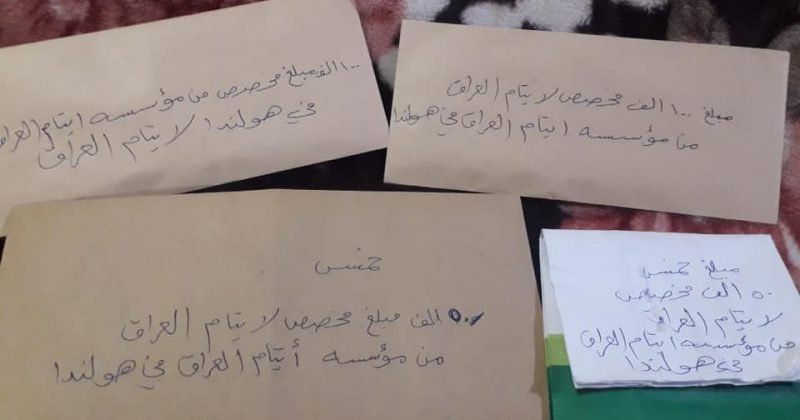 ١٠٠ الف مبلغ مخصص من مؤسسه ايتام العراق
في هولندا لا يتام العراق
مبلغ ١٠٠ الف مخصص لا يتام العراق
من مؤسسه ايتام العراق في هولندا
خمس
٥٠ الف مبلغ مخصص لا يتام العراق
من مؤسسه أيتام العراق في هولندا
مبلغ خمس
٥٠ الف مخصص
لا يتام العراق
من مؤسسه ايتام العراق
في هولندا